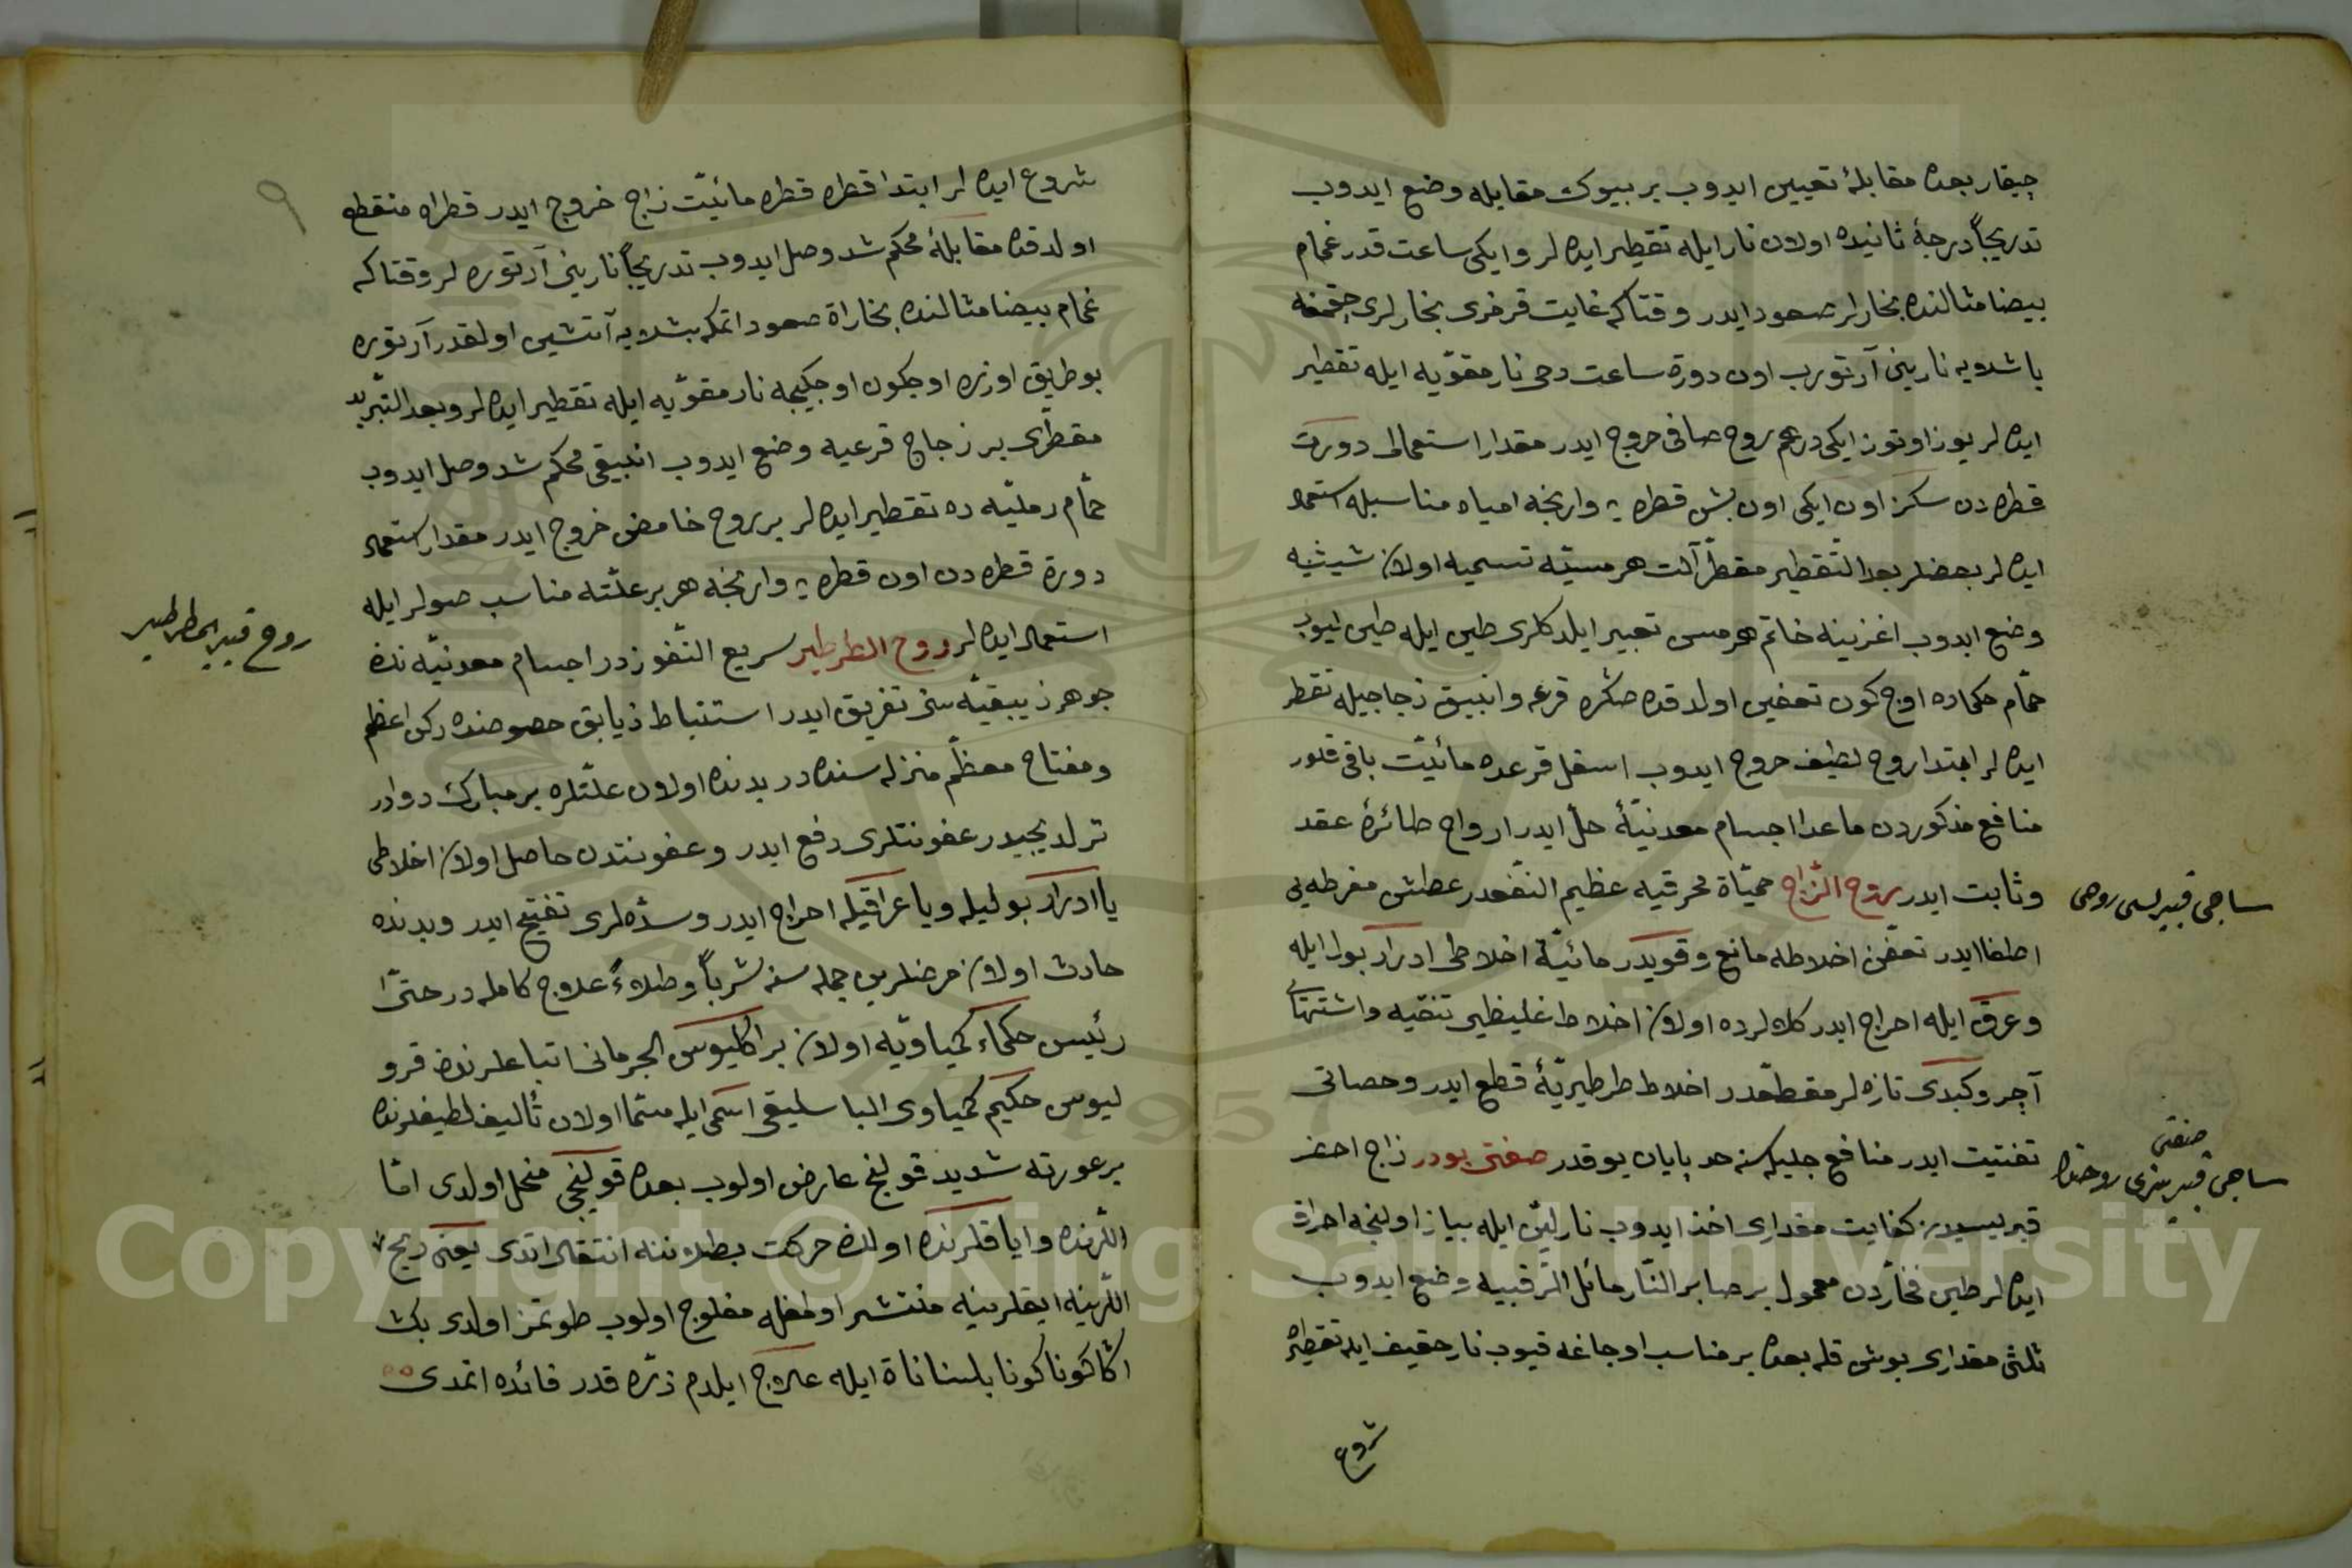 چيقار بعده مقابلۀ تعيين ايدوب بر بيوك مقابله وضع ايدوب
تدريجاً درجۀ ثانيده اولان نار ايله تقطير ايده لر و ايكى ساعت قدر غمام
بيضا مثالنده بخارلر صعود ايدر وقتاكه غايت قرمزى بخارلرى چقمغه
باشلايه نارينى آرتورب اون دورة ساعت دخى نار مقوّيه ايله تقطير
ايده لر يوز اوتوز ايكى درهم روح صافى خروج ايدر مقدار استعمالى دورت
قطره دن سكز اون ايكى اون بش قطره يه وارنجه امياه مناسبله استعمال
ايده لر بعضلر بعد التقطير مقطّر آلت هرمسيّه تسميه اولان شيشيه
وضع ايدوب اغزينه خاتم هرمسى تعبير ايلدكلرى طين ايله طين ليوب
حمّام حكماده اوچ كون تعفين اولدقده صكره قرعه و انبيق زجاجيله تقطر
ايده لر ابتدا روح لطيف خروج ايدوب اسفل قرعده مائيّت باقى قلور
منافع مذكوردن ماعدا اجسام معدنيّۀ حل ايدر ارواح طائرۀ عقد
وثابت ايدر روح الزاج حميّاة محرقيه عظيم النفعدر عطش مفرطه يى
اطفا ايدر تعفن اخلاطه مانع وقويدر مائيّة اخلاطى ادرار بول ايله
وعرق ايله اخراج ايدر كلالرده اولان اخلاط غليظى تنقيه واشتهايى
آچر وكبدى تازه لر مقطعدر اخلاط طرطيريّۀ قطع ايدر وحصاتى
تفتيت ايدر منافع جليله سنه حد پايان يوقدر صفتى بودر زاج احضر
قبريسيدن كفايت مقدارى اخذ ايدوب نار ليّن ايله بياز اولنجه احراق
ايده لر طين فخّاردن معمول بر صابر النّار مائل الرقبيه وضع ايدوب
ثلثى مقدارى بوش قله بعده بر مناسب اوجاغه قيوب نار حقيف ايله تقطيره
شروع
ساچى قبريسى روحى
صنعتى
ساچى قبريسى روحنك
شروع ايده لر ابتدا قطره قطره مائيّت زاج خروج ايدر قطراه منقطع
اولدقده مقابلۀ محكم شد وصل ايدوب تدريجاً نارينى آرتوره لر وقتاكه
غمام بيضا مثالنده بخاراة صعود اتمكه بشلايه آتشين اولقدر آرتوره
بو طريق اوزره اوچكون اوچكيجه نار مقوّيه ايله تقطير ايده لر وبعد التبريد
مقطّرى بر زجاج قرعيه وضع ايدوب انبيقى محكم شد وصل ايدوب
حمّام رمليّه ده تقطير ايده لر بر روح خامض خروج ايدر مقدار استعمال
دورة قطره دن اون قطره يه وارنجه هر بر علّته مناسب صولر ايله
استعمال ايده لر روح الطرطير سريع النفوزدر اجسام معدنيّه ندن
جوهر زيبقيّه سنى تفريق ايدر استنباط زيابق خصوصنده ركن اعظم
ومفتاح معظّم منزله سنده در بدنده اولان علّتلره بر مبارك دوادر
ترلديجيدر عفونتلرى دفع ايدر وعفونتدن حاصل اولان اخلاطى
يا ادرار بوليله ويا عراقيله اخراج ايدر وسدّه لرى تفتيح ايدر وبدنده
حادث اولان مرضلرين جمله سنه شرباً وطلاءً علاج كامله در حتّى
رئيس حكماء كيمياويّه اولان براكليوس الجرمانى اتباعلرندن قرو
ليوس حكيم كيمياوى الباسليقى اسمى ايله مسمّا اولان تأليف لطيفلرنده
بر عورته شديد قولنج عارض اولوب بعده قولنجى منحل اولدى امّا
اللرنده واياقلرنده اولان حركت بطلاننه انتقال اتدى يعنى ريح
اللرينه ايقلرينه منتشر اولمغله مفلوج اولوب طوتمز اولدى بك
اكا كونا كونا بلسناناة ايله علاج ايلدم ذرّه قدر فائده اتمدى